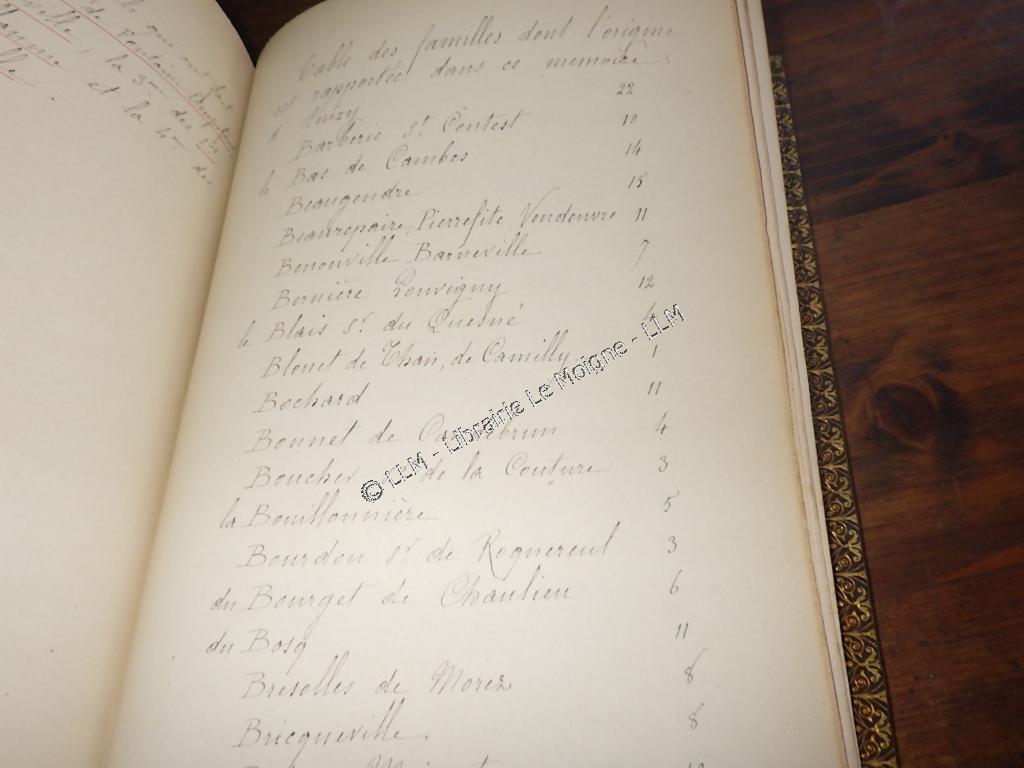 ville
qui ont fait
la 3me des
et la 4me des
Table des familles dont l'origine
est rapportée dans ce memoire.
d' 22
Barberie st Contest 10
le Bas de Cambes 14
Beaugendre 15
Beaurepaire, Pierrefite, Vendeuvre 11
Benouville Barneville 7
Bernière Louvigny 12
le Blais sr du Quesné 4
Blouet de Than, de Camilly 1
Bochard 11
Bonnet de 4
Boucher de la Couture 3
la Bouillonnière 5
Bourdon sr de Roquereul 3
du Bourget de Chaulieu 6
du Bosq 11
Bresolles de Morez 8
Bricqueville. 8
© LLM - Librairie Le Moigne - LLM